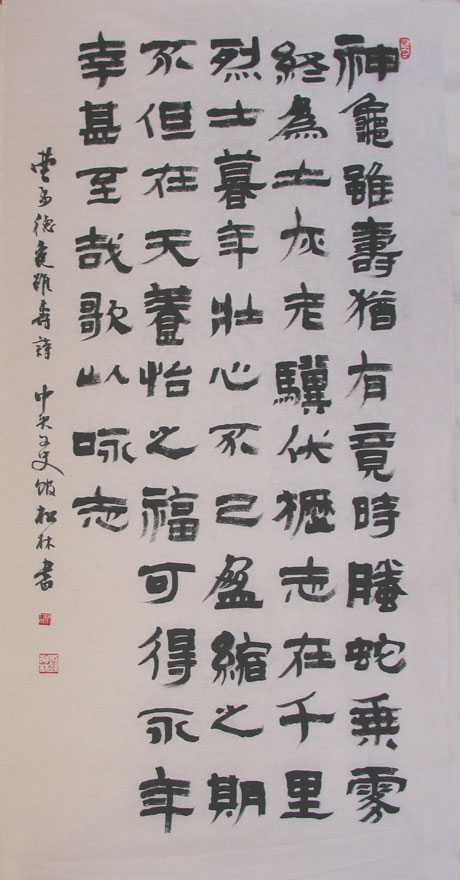 神龜雖壽猶有竟時螣蛇乘霧
終為土灰老驥伏櫪志在千里
烈士暮年壯心不已盈縮之期
不但在天養怡之福可得永年
幸甚至哉歌以咏志
曹孟德龜雖壽詩 中央文史館松林書